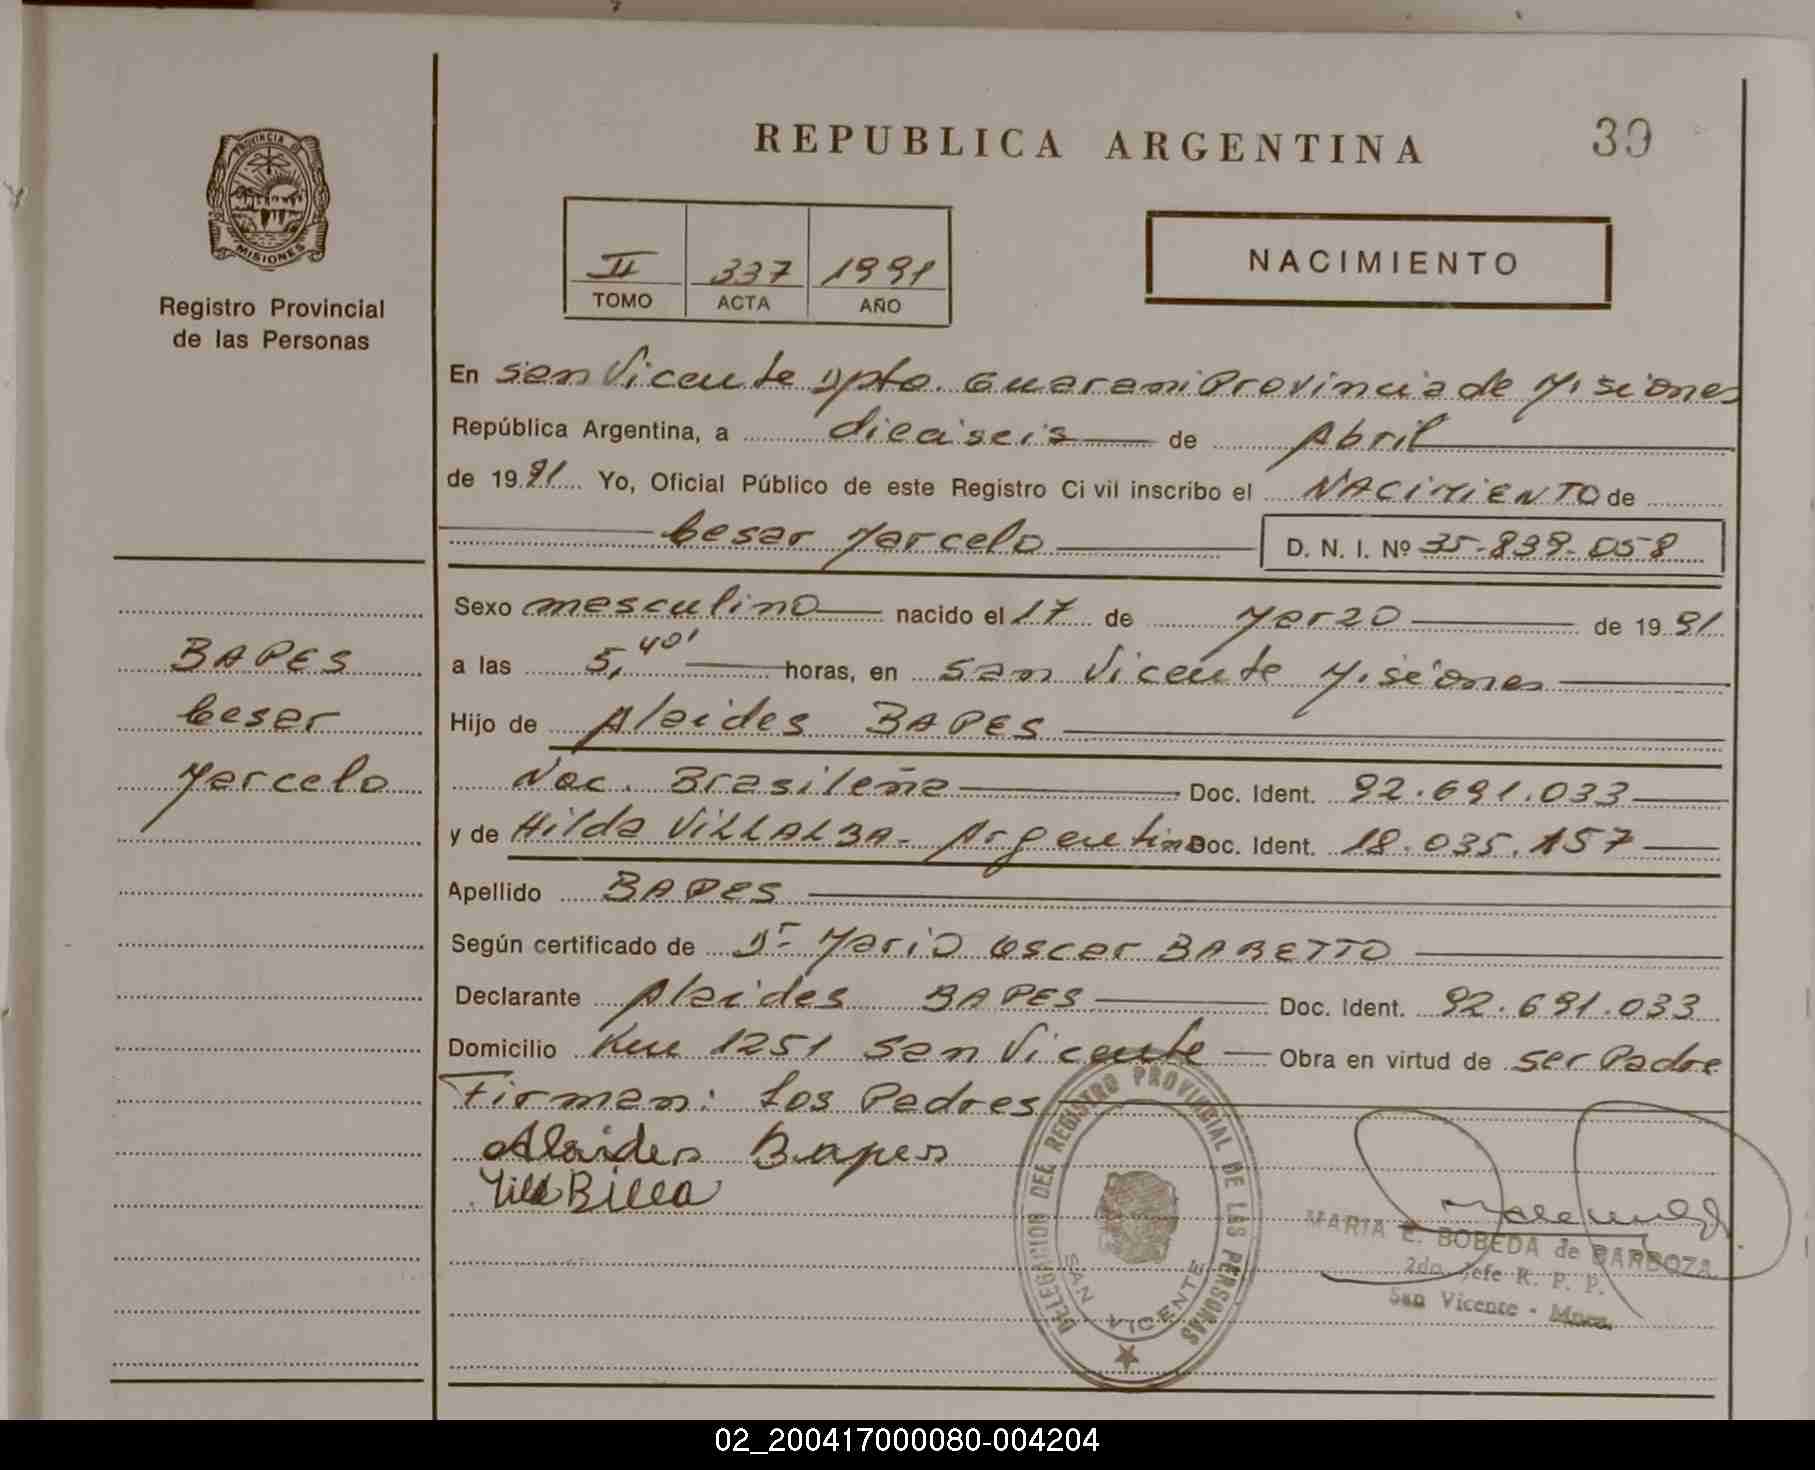 REPUBLICA ARGENTINA
39
PROVINCIA DE
MISIONES
Registro Provincial
de las Personas
II 337 1991
TOMO ACTA AÑO
NACIMIENTO
En San Vicente Dpto. Guarani Provincia de Misiones
República Argentina, a dieciseis de Abril
de 1991 Yo, Oficial Público de este Registro Civil inscribo el NACIMIENTO de
Cesar Marcelo D. N. I. Nº 35.899.058
Sexo masculino nacido el 17 de Marzo de 1991
a las 5,40' horas, en San Vicente Misiones
Hijo de Alaides BAPES
Nac. Brasileña Doc. Ident. 92.691.033
y de Hilda VILLALBA - Argentina Doc. Ident. 18.035.157
Apellido BAPES
Según certificado de Dr Mario Oscar BARETTO
Declarante Alaides BAPES Doc. Ident. 92.691.033
Domicilio Km 1251 San Vicente Obra en virtud de ser Padre
Firman: Los Padres
Alaides Bapes
BAPES
Cesar
Marcelo
DELEGACION DEL REGISTRO PROVINCIAL DE LAS PERSONAS
SAN VICENTE
MARIA E. BOBEDA de BARBOZA
2do. Jefe R. P. P.
San Vicente - Mnes.
02_200417000080-004204